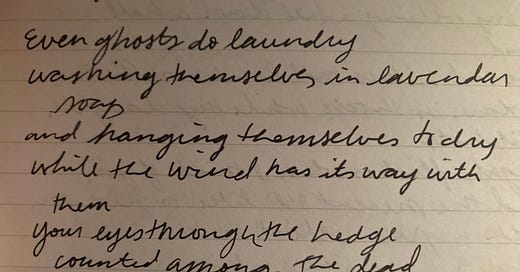 Even ghosts do laundry
washing themselves in lavendar
soap
and hanging themselves to dry
while the wind has its way with
them
your eyes through the hedge
counted among the dead